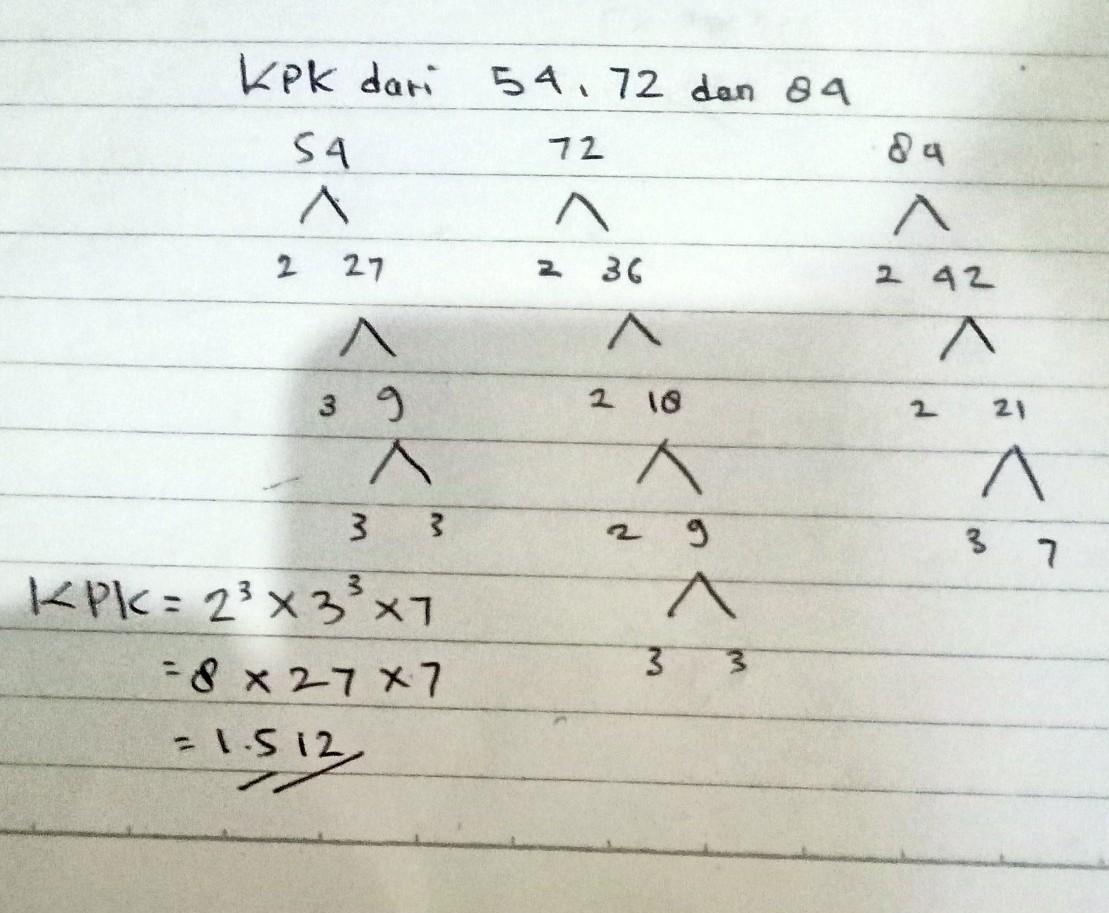 KPK dari 54, 72 dan 84
54 72 84
2 27 2 36 2 42
3 9 2 18 2 21
3 3 2 9 3 7
KPK = 2³ × 3³ × 7
3 3
= 8 × 27 × 7
= 1.512